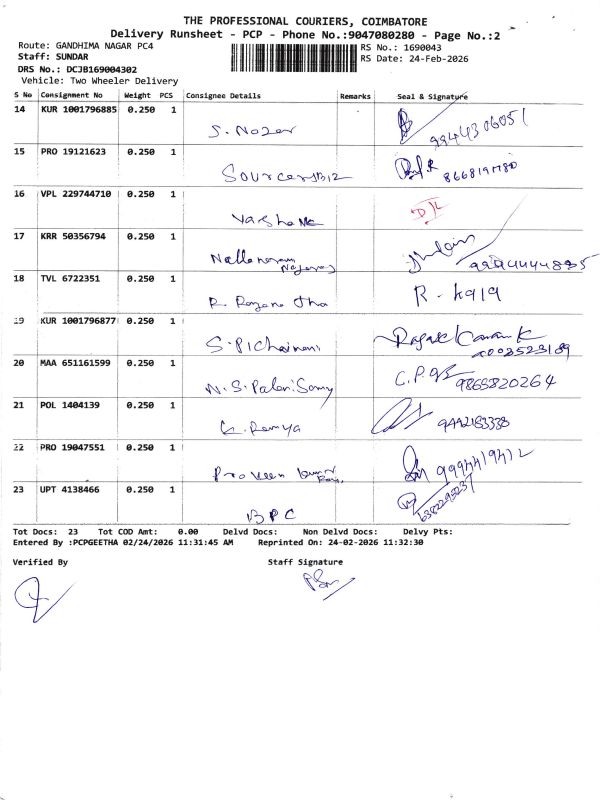 THE PROFESSIONAL COURIERS, COIMBATORE
Delivery Runsheet - PCP - Phone No.:9047080280 - Page No.:2
Route: GANDHIMA NAGAR PC4
RS No.: 1690043
Staff: SUNDAR
RS Date: 24-Feb-2026
DRS No.: DCJB169004302
Vehicle: Two Wheeler Delivery
S No Consignment No Weight PCS Consignee Details Remarks Seal & Signature
14 KUR 1001796885 0.250 1
S. Nozer 9944306051
15 PRO 19121623 0.250 1
SourcersBiz
16 VPL 229744710 0.250 1
D/L
17 KRR 50356794 0.250 1
18 TVL 6722351 0.250 1
R.
19 KUR 1001796877 0.250 1
20 MAA 651161599 0.250 1
N. S. Palani Samy C.P. 9865820264
21 POL 1404139 0.250 1
K. Ramya 9442183338
22 PRO 19047551 0.250 1
Praveen kumar 9994419412
23 UPT 4138466 0.250 1
BPC
Tot Docs: 23 Tot COD Amt: 0.00 Delvd Docs: Non Delvd Docs: Delvy Pts:
Entered By :PCPGEETHA 02/24/2026 11:31:45 AM Reprinted On: 24-02-2026 11:32:30
Verified By Staff Signature